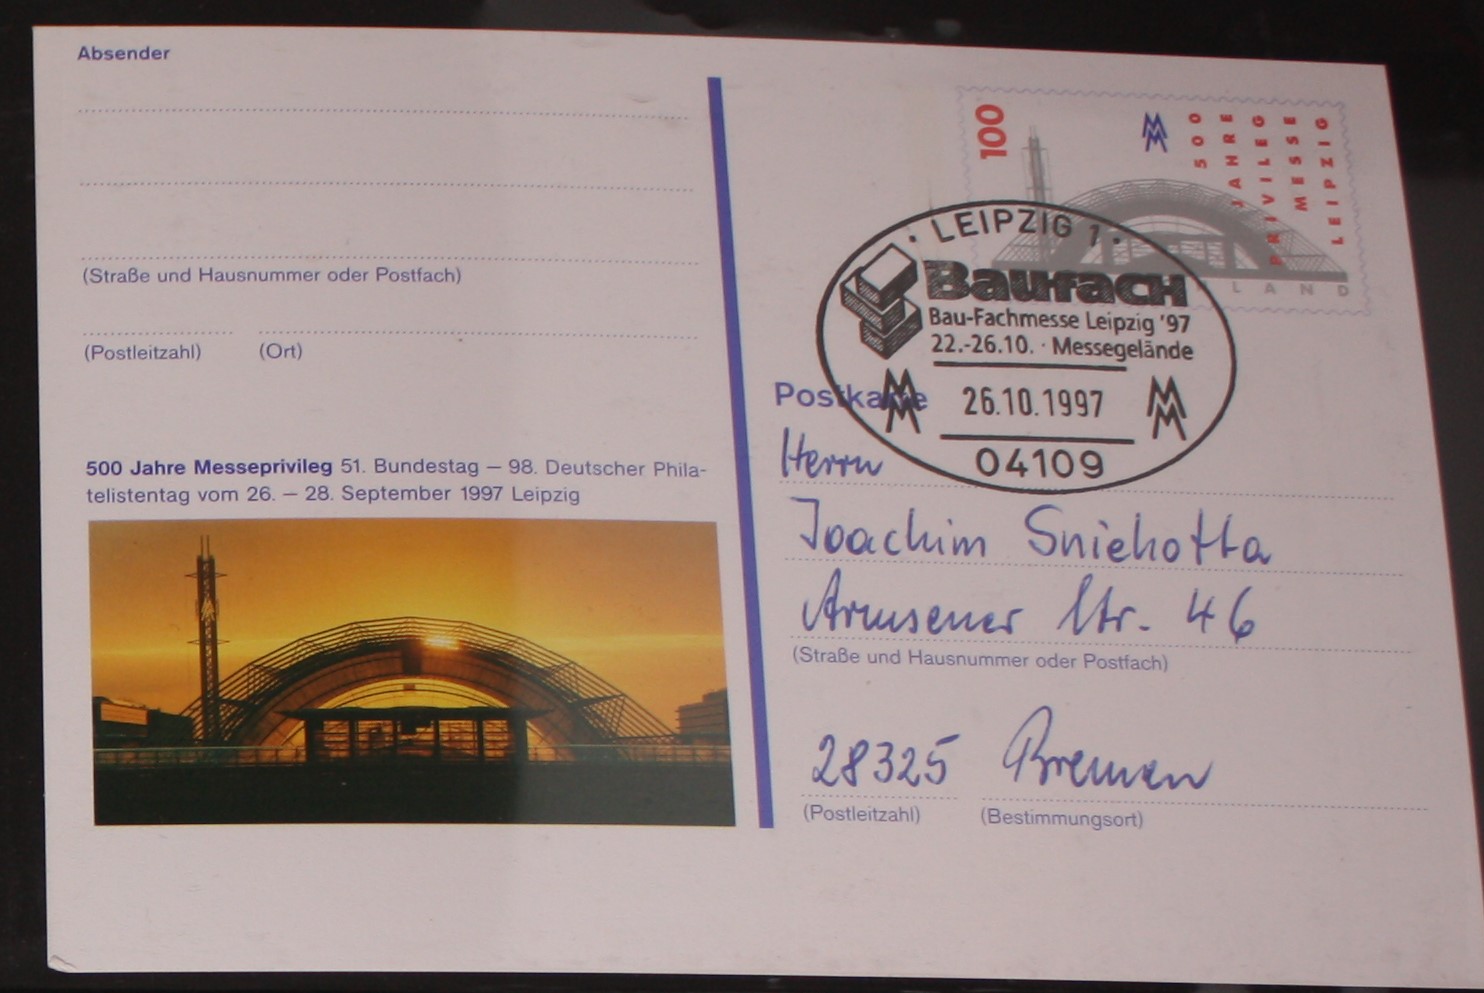 Absender
(Straße und Hausnummer oder Postfach)
(Postleitzahl) (Ort)
500 Jahre Messeprivileg 51. Bundestag – 98. Deutscher Phila-
telistentag vom 26. – 28. September 1997 Leipzig
100
500
JAHRE
PRIVILEG
MESSE
LEIPZIG
LAND
· LEIPZIG 1 ·
Baufach
Bau-Fachmesse Leipzig '97
22.-26.10. · Messegelände
26.10.1997
04109
Postkarte
Herrn
Joachim Sniehotta
Arnsener Str. 46
(Straße und Hausnummer oder Postfach)
28325 Bremen
(Postleitzahl) (Bestimmungsort)